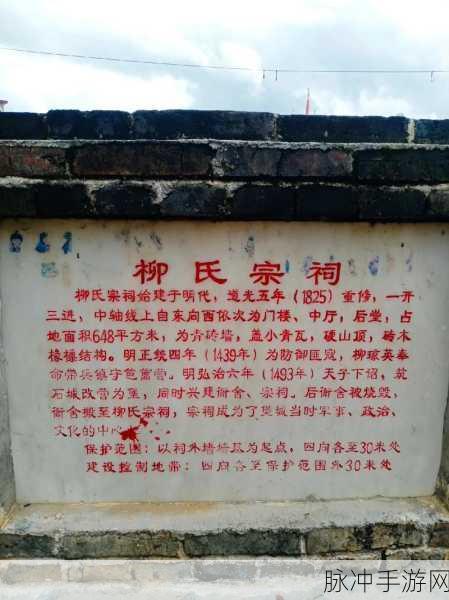 柳氏宗祠
柳氏宗祠始建于明代，道光五年（1825）重修，一开
三进，中轴线上自东向西依次为门楼、中厅，后堂，占
地面积648平方米，为青砖墙，盖小青瓦，硬山顶，砖木
椽檩结构。明正统四年（1439年）为防御匪寇，柳琼英奉
命带兵镇守 营。明弘治六年（1493年）天子下诏，筑
石城改营为 ，同时兴建衙舍、宗祠。后衙舍被烧毁，
衙舍搬至柳氏宗祠，宗祠成为了 城当时军事、政治、
文化的中心
保护范围：以祠外墙墙基为起点，四向各至30米处
建设控制地带：四向各至保护范围外30米处
脉冲手游网